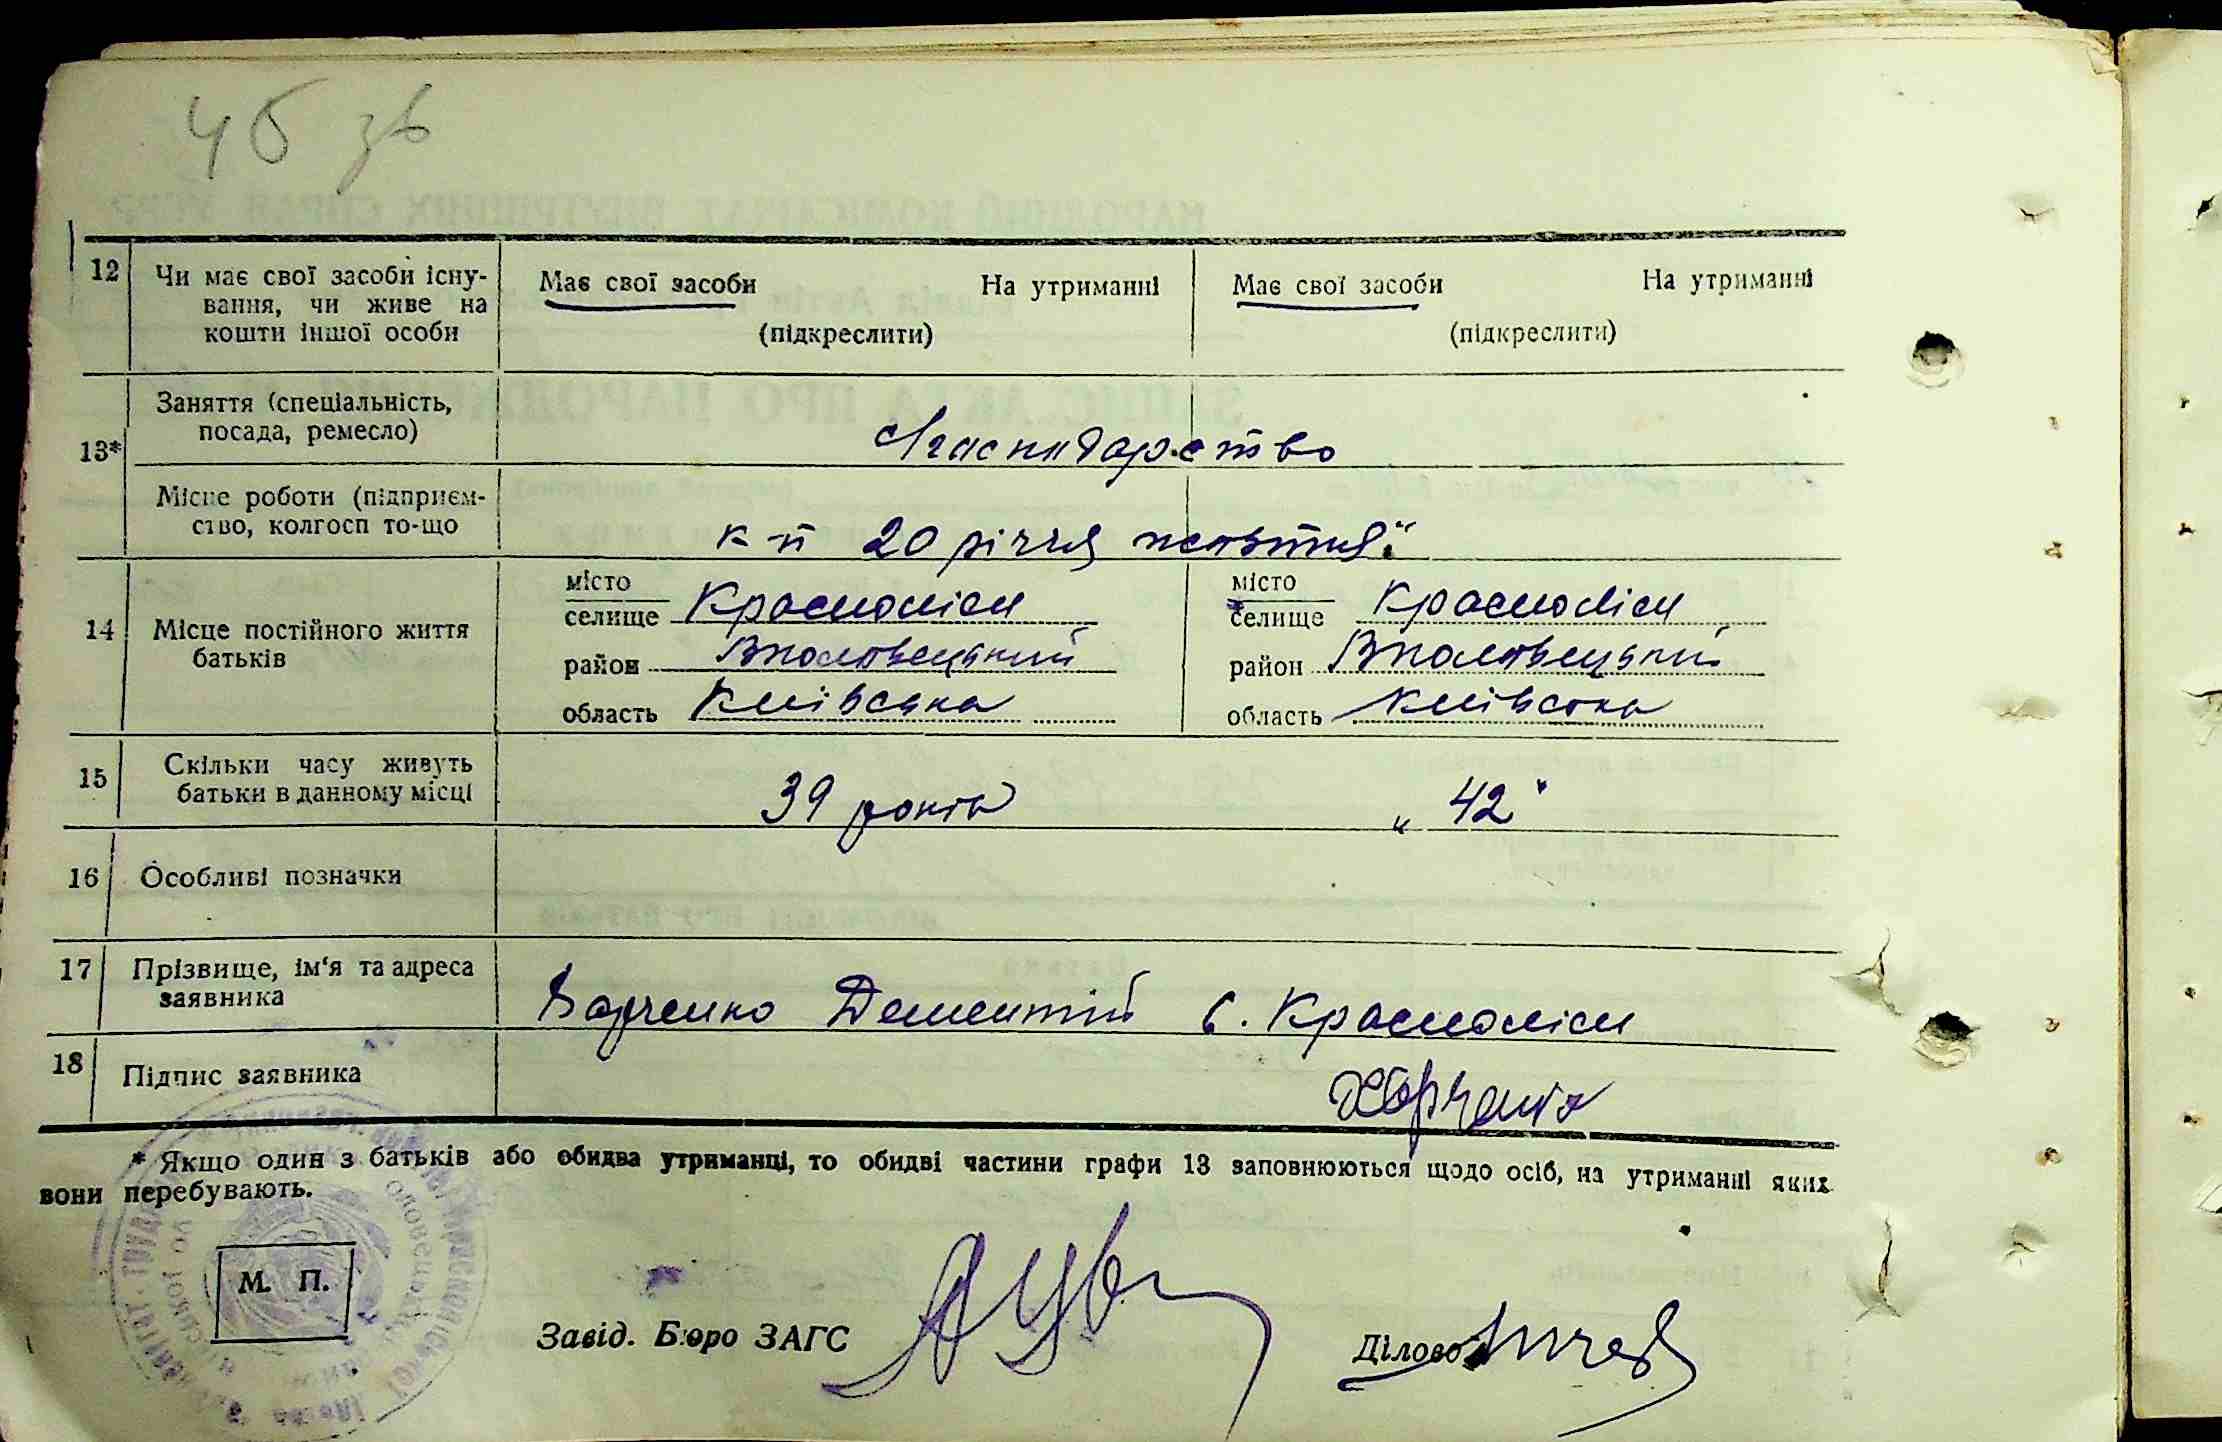 4б зв
12 Чи має свої засоби існу- Має свої засоби На утриманні Має свої засоби На утриманні
вання, чи живе на
кошти іншої особи (підкреслити) (підкреслити)
13* Заняття (спеціальність,
посада, ремесло) сільгосподарство
Місце роботи (підприєм-
ство, колгосп то-що к-п 20 річчя жовтня"
14 Місце постійного життя
батьків
місто селище Красноліси місто селище Красноліси
район район
область Київська область Київська
15 Скільки часу живуть
батьки в данному місці 39 років „ 42 "
16 Особливі позначки
17 Прізвище, ім'я та адреса
заявника Дементій с. Красноліси
18 Підпис заявника
* Якщо один з батьків або обидва утриманці, то обидві частини графи 13 заповнюються щодо осіб, на утриманні яких
вони перебувають.
М. П.
Завід. Бюро ЗАГС Ділово